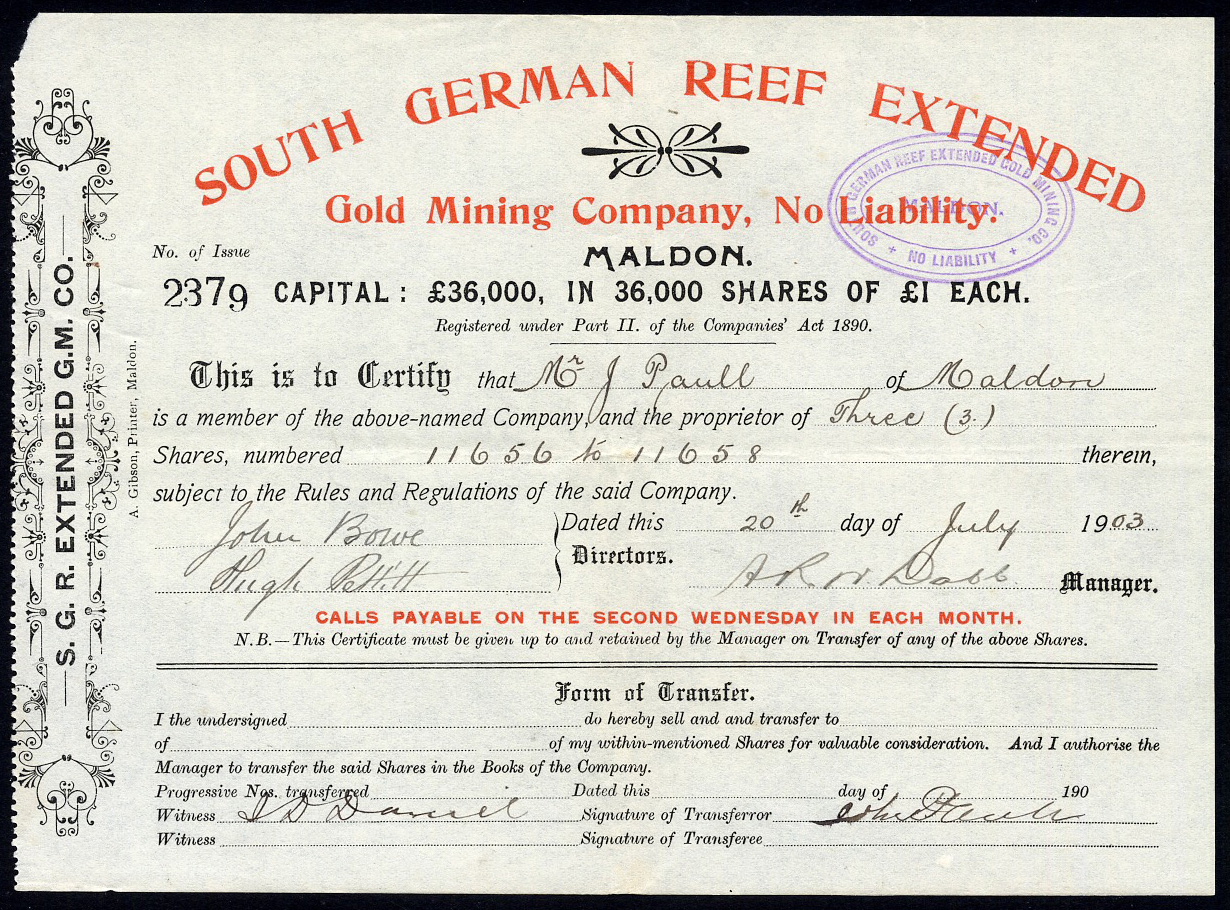 SOUTH GERMAN REEF EXTENDED
Gold Mining Company, No Liability.
SOUTH GERMAN REEF EXTENDED GOLD MINING CO.
MALDON.
+ NO LIABILITY +
No. of Issue
MALDON.
2379 CAPITAL: £36,000, IN 36,000 SHARES OF £1 EACH.
Registered under Part II. of the Companies' Act 1890.
This is to Certify that Mr J Paull of Maldon
is a member of the above-named Company, and the proprietor of Three (3.)
Shares, numbered 11656 to 11658 therein,
subject to the Rules and Regulations of the said Company.
John Bowe Dated this 20th day of July 1903
Directors.
Hugh Pettitt Manager.
CALLS PAYABLE ON THE SECOND WEDNESDAY IN EACH MONTH.
N.B.—This Certificate must be given up to and retained by the Manager on Transfer of any of the above Shares.
Form of Transfer.
I the undersigned do hereby sell and and transfer to
of of my within-mentioned Shares for valuable consideration. And I authorise the
Manager to transfer the said Shares in the Books of the Company.
Progressive Nos. transferred Dated this day of 190
Witness Daniel Signature of Transferror John
Witness Signature of Transferee
S. G. R. EXTENDED G.M. CO.
A. Gibson, Printer, Maldon.